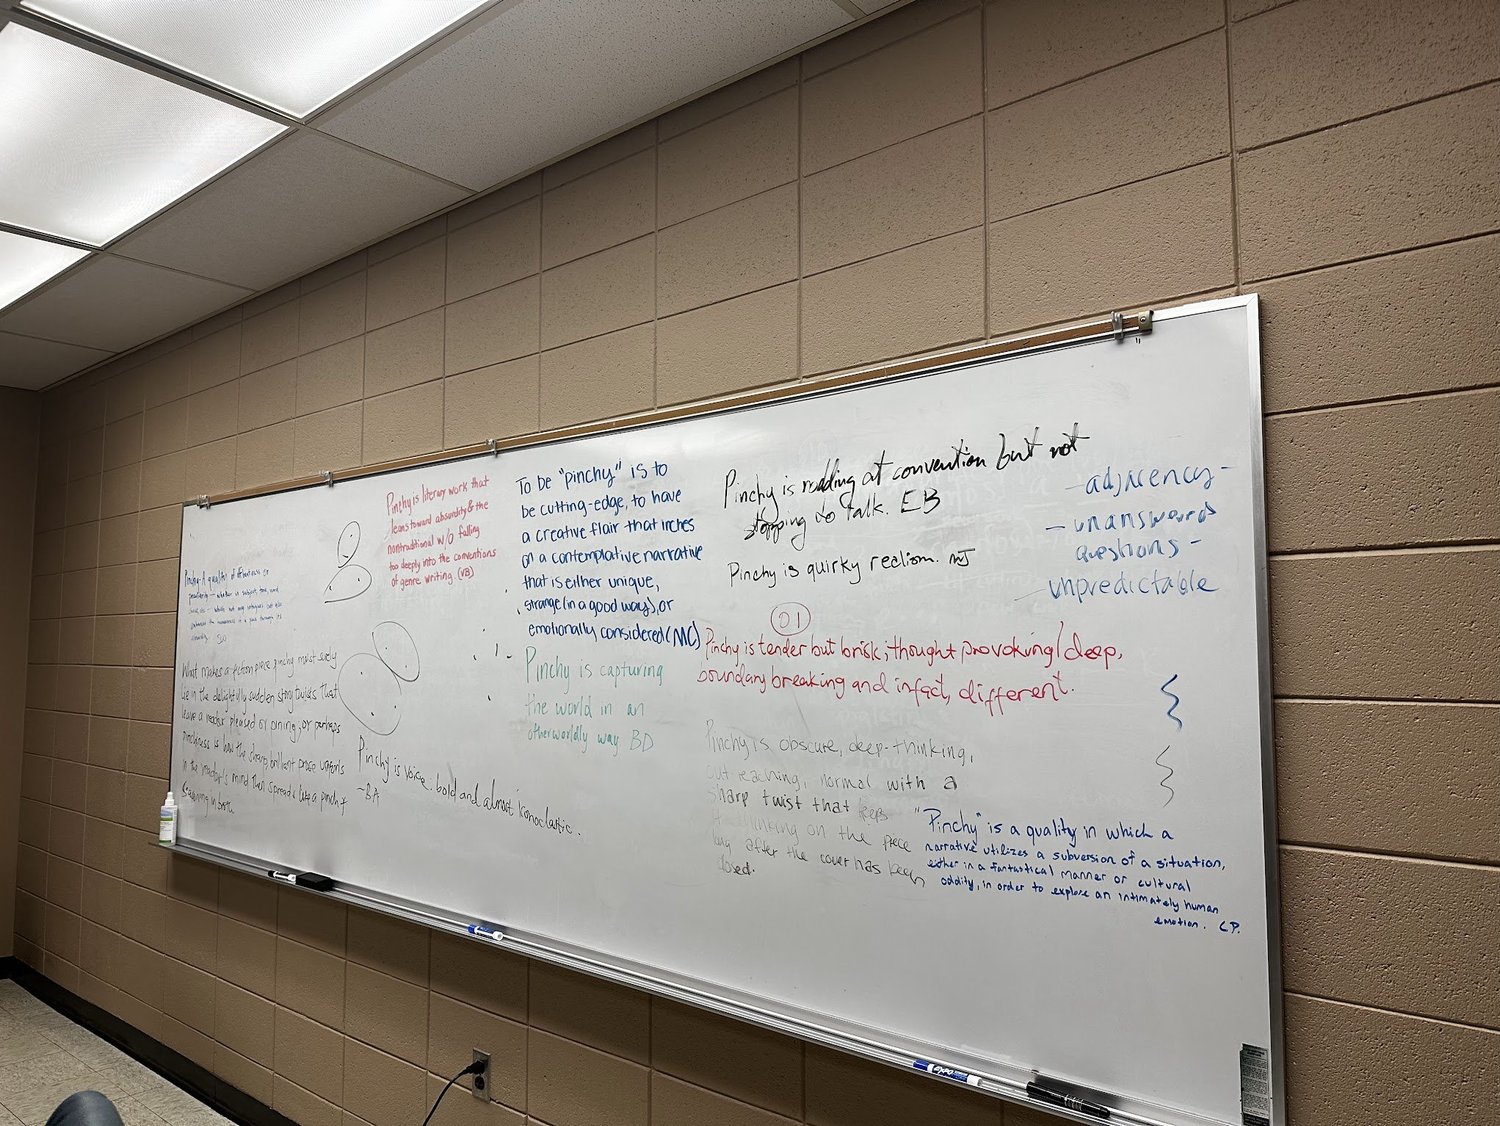 Pinchy is literary work that
leans toward absurdity & the
nontraditional w/o falling
too deeply into the conventions
of genre writing. (VB)
To be "pinchy" is to
be cutting-edge, to have
a creative flair that inches
on a contemplative narrative
that is either unique,
strange (in a good way), or
emotionally considered (MC)
Pinchy is capturing
the world in an
otherworldly way BD
What makes a fiction piece pinchy most surely
lie in the delightfully sudden story twists that
leave a reader pleased or pining, or perhaps
pinchiness is how the sharp, brilliant prose unfurls
in the reader's mind then spreads like a pinch of
seasoning in broth
Pinchy is voice. bold and almost iconoclastic.
-BA
Pinchy is nodding at convention but not
stopping to talk. EB
Pinchy is quirky realism. MJ
- adjacency -
- unanswered
questions -
unpredictable
01
Pinchy is tender but brisk; thought provoking/deep,
boundary breaking and infact, different.
Pinchy is obscure, deep-thinking,
out reaching, normal with a
sharp twist that keeps
thinking on the piece
long after the cover has been
closed.
"Pinchy" is a quality in which a
narrative utilizes a subversion of a situation,
either in a fantastical manner or cultural
oddity, in order to explore an intimately human
emotion. CP.
EXPO